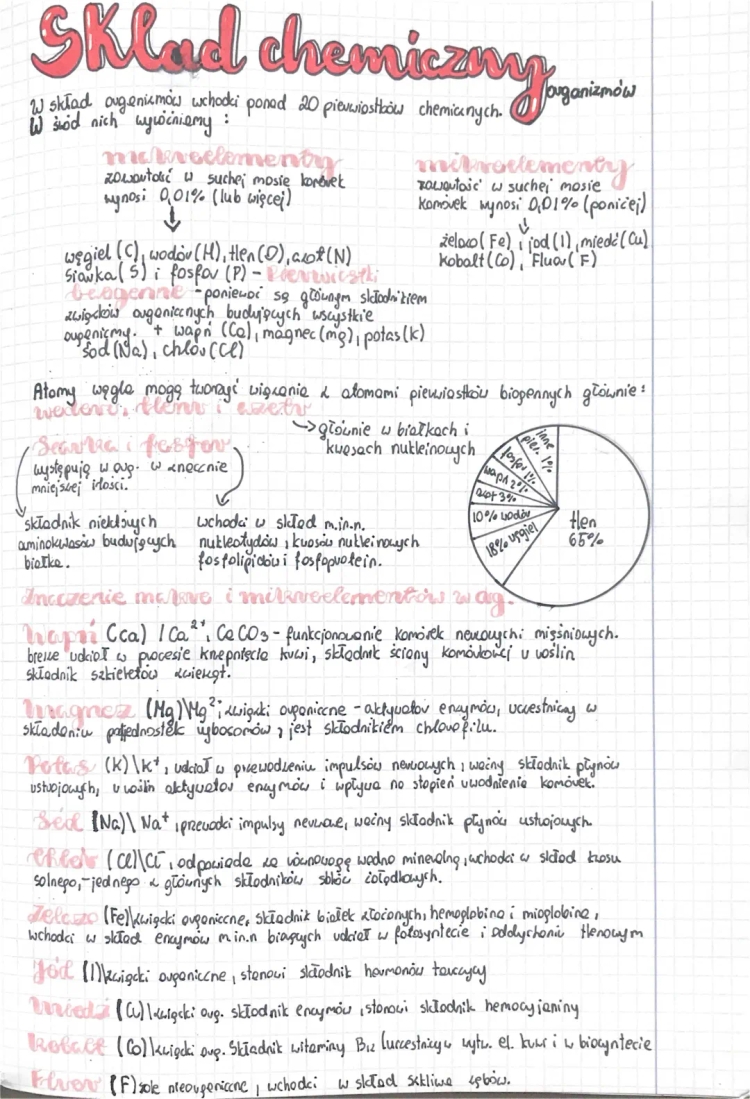 Skład chemiczny
organizmów
W skład organizmów wchodzi ponad 20 pierwiastków chemicznych.
W śród nich wyróżniamy :
makroelementy
zawartość w suchej masie komórek
wynosi 0,01% (lub więcej)
węgiel (C), wodór (H), tlen (O), azot (N)
siarka (S) i fosfor (P) - Pierwiastki
biogenne - ponieważ są głównym składnikiem
związków organicznych budujących wszystkie
organizmy. + wapń (Ca), magnez (mg), potas (k)
sód (Na), chlor (Cl)
mikroelementy
zawartość w suchej masie
komórek wynosi 0,01% (poniżej)
żelazo (Fe), jod (I), miedź (Cu)
kobalt (Co), Fluor (F)
Atomy węgla mogą tworzyć wiązania z atomami pierwiastków biogennych głównie :
wodoru, tlenu i azotu
głównie w białkach i
kwasach nukleinowych
Siarka i fosfor
występują w org. w znacznie
mniejszej ilości.
składnik niektórych
aminokwasów budujących
białka.
wchodzi w skład m.in.n.
nukleotydów, kwasów nukleinowych
fosfolipidów i fosfoprotein.
inne
pier. 1%
fosfor 1%
wapń 2%
azot 3%
10% wodór
18% węgiel
tlen
65%
Znaczenie makro i mikroelementów w og.
Wapń (ca) / Ca²⁺, CaCO3 - funkcjonowanie komórek nerwowych i mięśniowych.
bierze udział w procesie krzepnięcia krwi, składnik ściany komórkowej u roślin
składnik szkieletów zwierząt.
magnez (Mg)\Mg²; związki organiczne - aktywator enzymów, uczestniczy w
składaniu podjednostek rybosomów, jest składnikiem chlorofilu.
Potas (K)\K⁺, udział w przewodzeniu impulsów nerwowych, ważny składnik płynów
ustrojowych, u roślin aktywator enzymów i wpływa na stopień uwodnienia komórek.
Sód (Na)\ Na⁺, przewodzi impulsy nerwowe, ważny składnik płynów ustrojowych.
Chlor (Cl)\Cl⁻, odpowiada za równowagę wodno mineralną, wchodzi w skład kwasu
solnego,-jednego z głównych składników soków żołądkowych.
Żelazo (Fe)\związki organiczne, składnik białek złożonych, hemoglobina i mioglobina,
wchodzi w skład enzymów m in.n biorących udział w fotosyntezie i oddychaniu tlenowym
Jod (I)\związki organiczne, stanowi składnik hormonów tarczycy
Miedź (Cu)\związki org. składnik enzymów, stanowi składnik hemocyjaniny
Kobalt (Co)\związki org. Składnik witaminy B12 (uczestniczy w wytw. el. krwi i w biosyntezie
Fluor (F) sole nieorganiczne, wchodzi w skład szkliwa zębów.